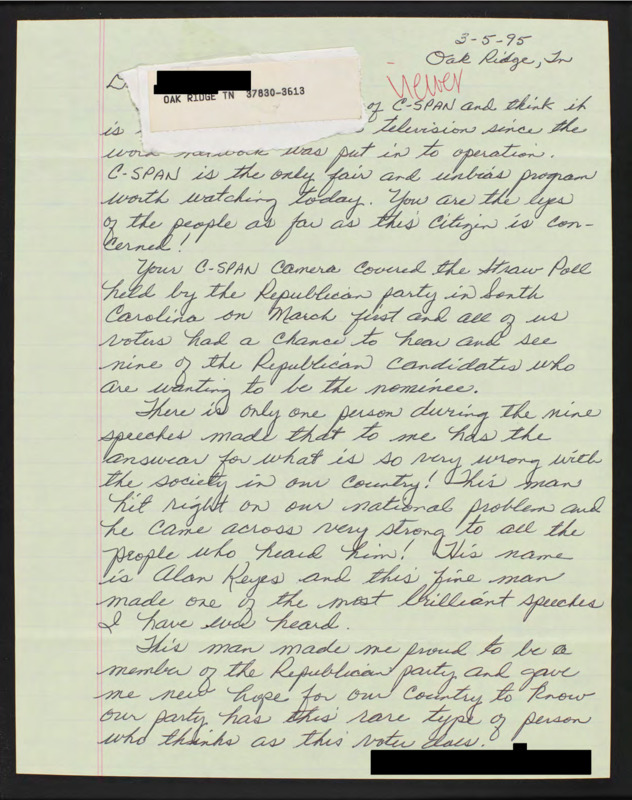 3-5-95
Oak Ridge, Tn
viewer
OAK RIDGE TN 37830-3613
of C-SPAN and think it
is television since the
work was put in to operation.
C-SPAN is the only fair and unbias program
worth watching today. You are the eyes
of the people as far as this citizen is con-
cerned!
Your C-SPAN camera covered the Straw Poll
held by the Republican party in South
Carolina on March first and all of us
voters had a chance to hear and see
nine of the Republican candidates who
are wanting to be the nominee.
There is only one person during the nine
speeches made that to me has the
answear for what is so very wrong with
the society in our country! This man
hit right on our national problem and
he came across very strong to all the
people who heard him! His name
is Alan Keyes and this fine man
made one of the most brilliant speeches
I have ever heard.
This man made me proud to be a
member of the Republican party and gave
me new hope for our country to know
our party has this rare type of person
who thinks as this voter does!